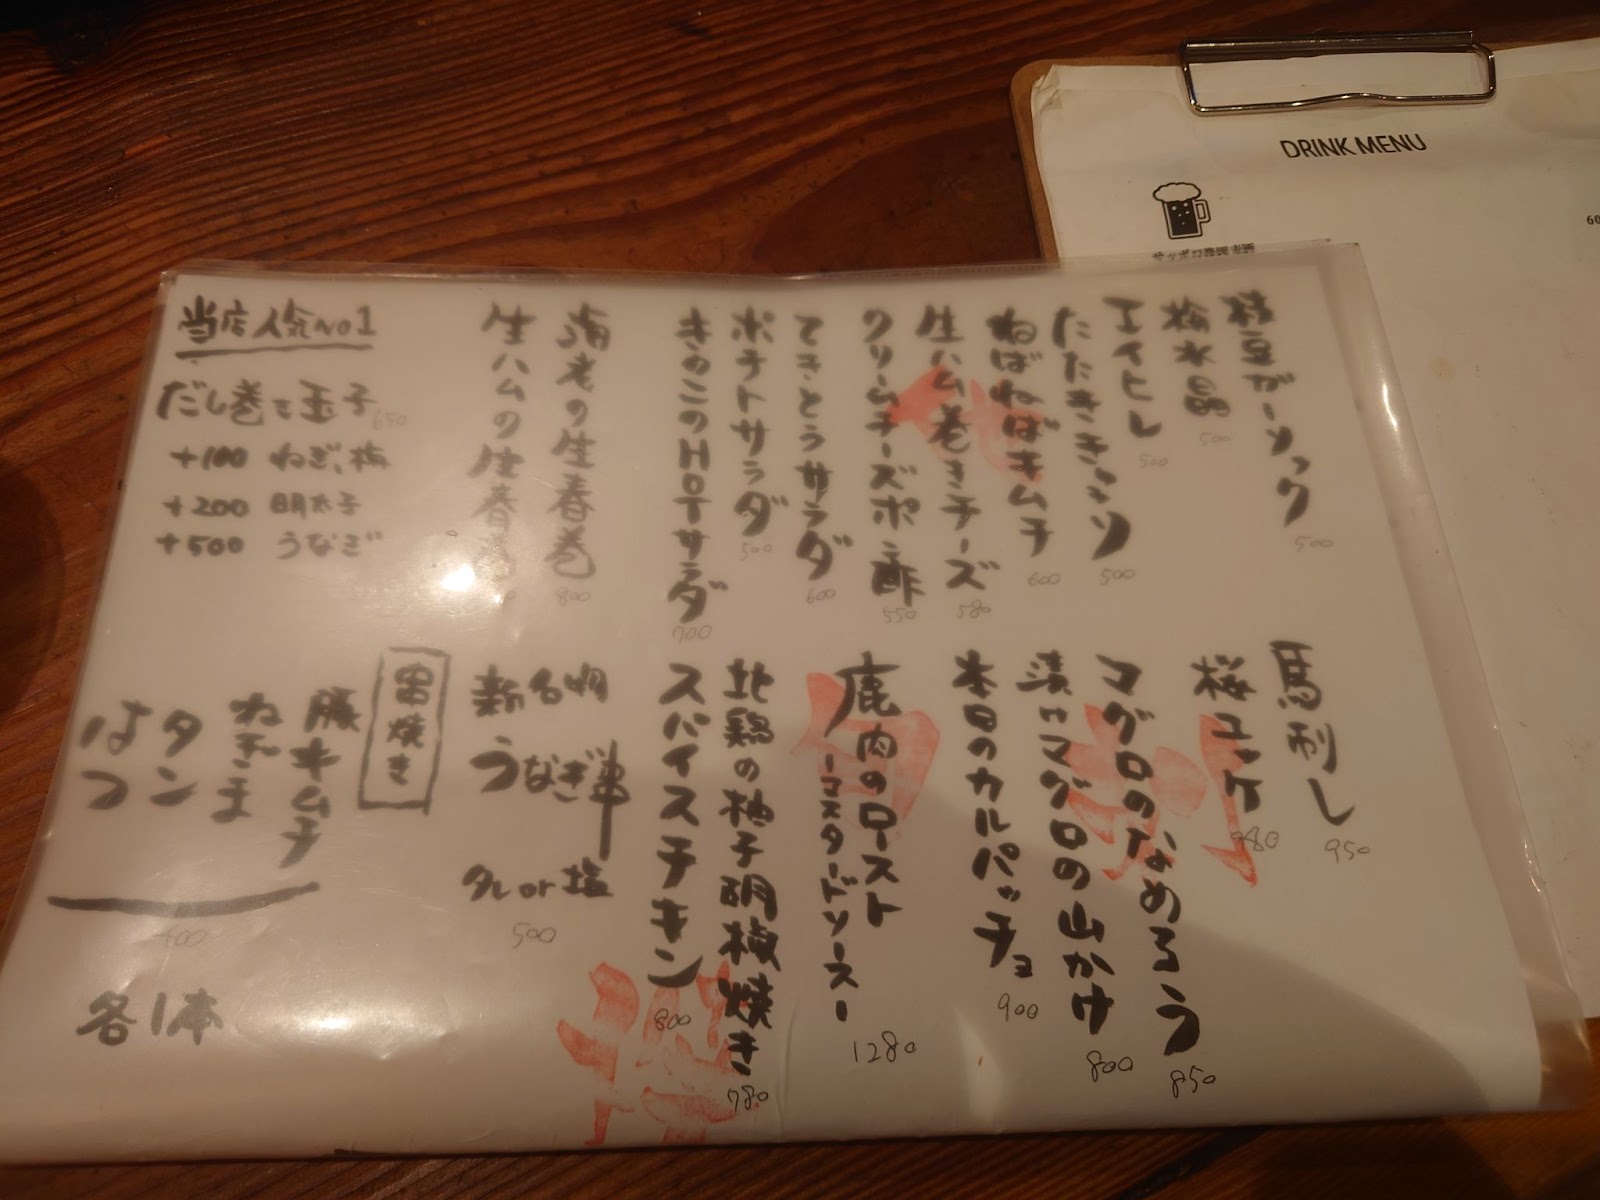 DRINK MENU
枝豆ガーリック
500
梅水晶
500
エイヒレ
500
たたききゅうり
500
ねばねばキムチ
600
生ハム巻きチーズ
580
クリームチーズポン酢
550
てきとうサラダ
600
ポテトサラダ
500
きのこのHOTサラダ
700
海老の生春巻
800
生ハムの生春巻
当店人気No1
だし巻き玉子 650
+100 ねぎ、梅
+200 明太子
+500 うなぎ
馬刺し
950
桜ユッケ
980
マグロのなめろう
850
漬けマグロの山かけ
800
本日のカルパッチョ
900
鹿肉のロースト
ーマスタードソースー
1280
北鶏の柚子胡椒焼き
780
スパイスチキン
800
新名物
うなぎ串
タレor塩
500
串焼き
豚キムチ
ねぎま
タン
はつ
400
各1本